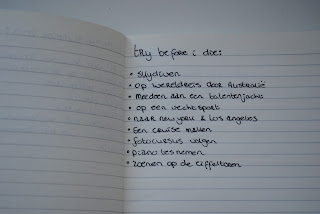 try before i die:
• skydiven
• op wereldreis door Australië
• meedoen aan een talentenjacht
• op een vechtsport
• naar new york & los angelos
• Een cruise maken
• fotocursus volgen
• pianoles nemen
• zoenen op de eiffeltoren